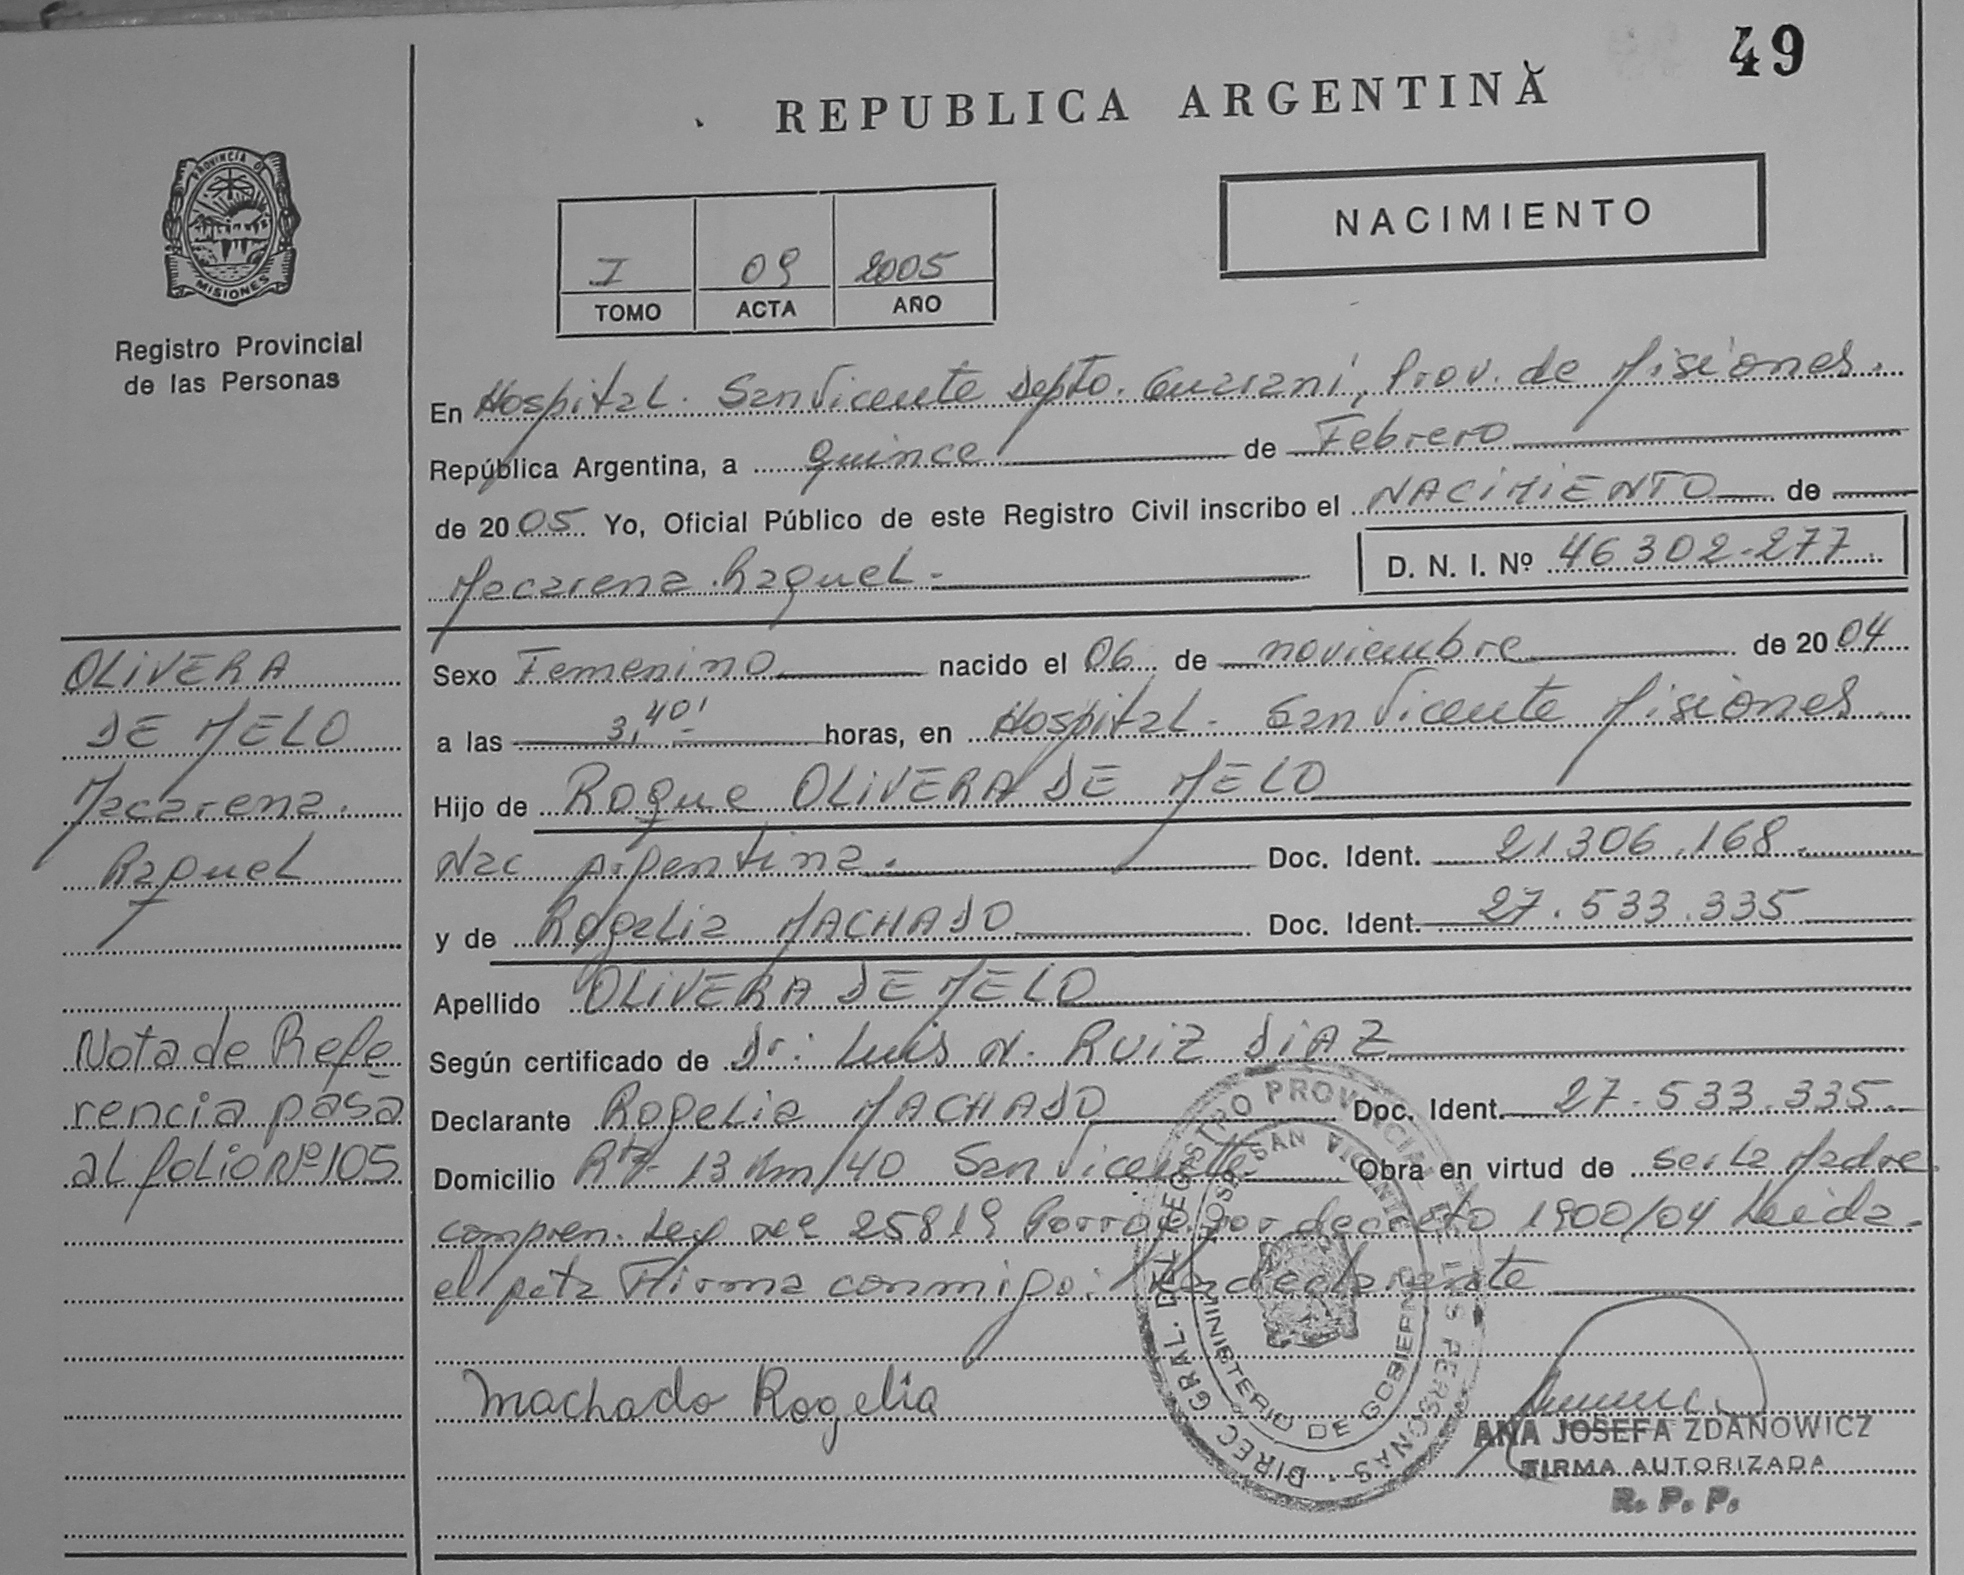 49
REPUBLICA ARGENTINA
NACIMIENTO
I 09 2005
TOMO ACTA AÑO
PROVINCIA DE
MISIONES
Registro Provincial
de las Personas
En Hospital. San Vicente Depto. Guarani, Prov. de Misiones.
República Argentina, a quince de Febrero
de 2005 Yo, Oficial Público de este Registro Civil inscribo el NACIMIENTO de
Macarena Raquel.
D. N. I. Nº 46302.277
Sexo Femenino nacido el 06 de noviembre de 2004
a las 3,40' horas, en Hospital. San Vicente Misiones.
Hijo de Roque OLIVERA DE MELO
Nac Argentina. Doc. Ident. 21306.168.
y de Rogelia MACHADO Doc. Ident. 27.533.335
Apellido OLIVERA DE MELO
Según certificado de Dr: Luis N. RUIZ DIAZ
Declarante Rogelia MACHADO Doc. Ident. 27.533.335.
Domicilio Rta 13 Km/40 San Vicente Obra en virtud de ser la Madre
compren. Ley Nº 25819 Porrog. por decreto 1900/04 Leida.
el acta Firma conmigo: La declarante
Machado Rogelia
ANA JOSEFA ZDANOWICZ
FIRMA AUTORIZADA
R. P. P.
DIREC GRAL. DEL REGISTRO PROVINCIAL DE LAS PERSONAS
SAN VICENTE
MINISTERIO DE GOBIERNO
OLIVERA
DE MELO
Macarena.
Raquel
Nota de Refe
rencia pasa
al folio Nº 105